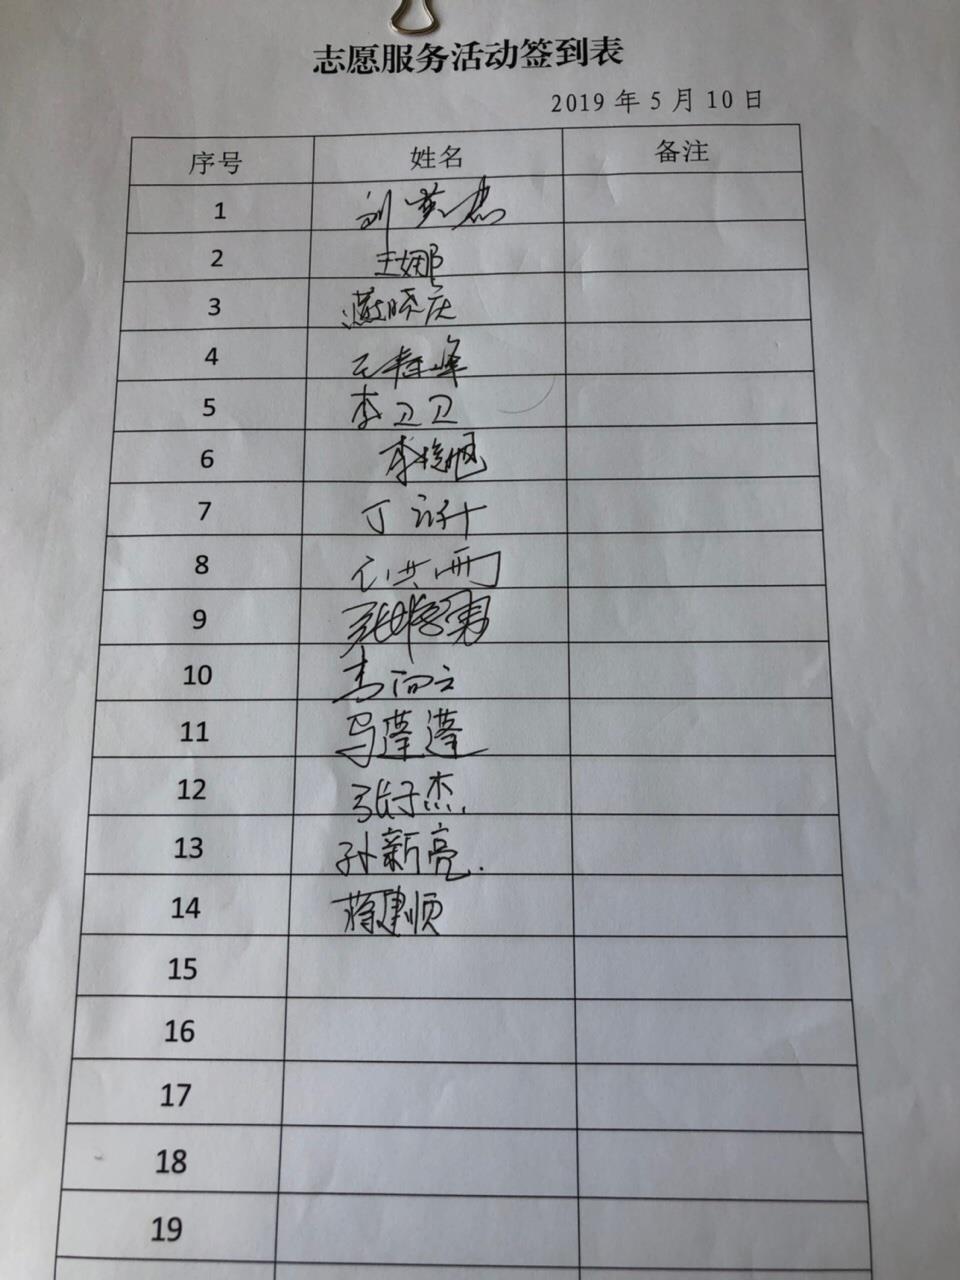 志愿服务活动签到表
2019 年 5 月 10 日
序号 姓名 备注
1 刘英杰
2 王娜
3 燕晓庆
4 王春峰
5 李卫卫
6 李
7 丁
8
9 张
10
11 马莲莲
12 张好杰.
13 孙新亮.
14 蒋建顺
15
16
17
18
19